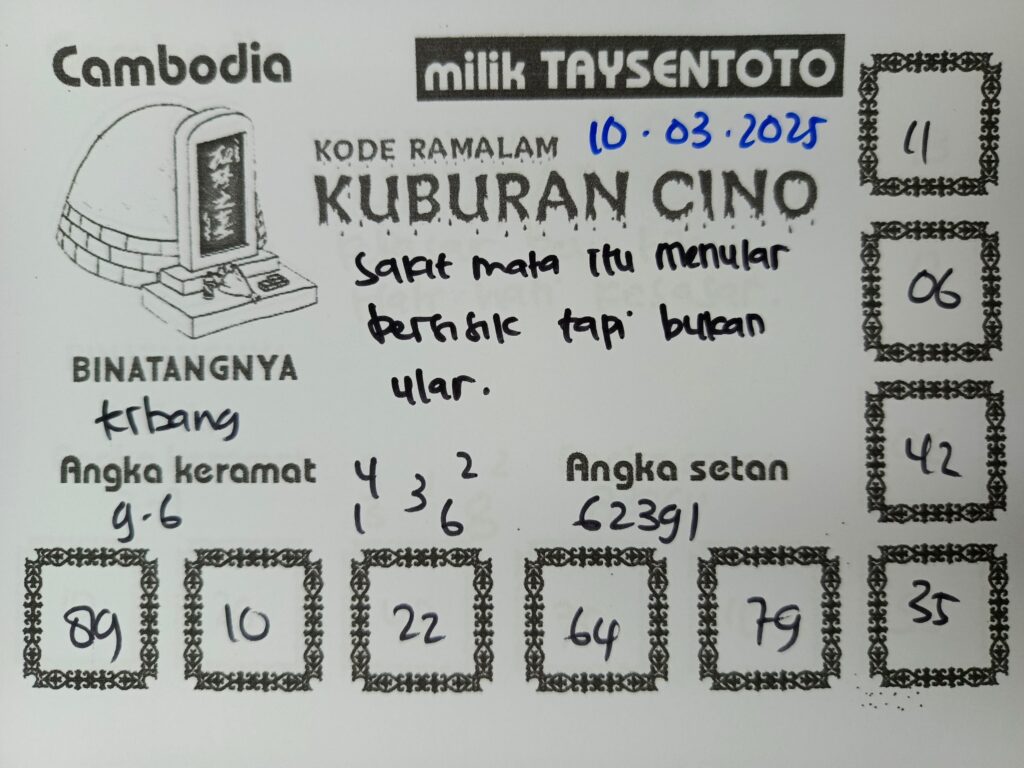 Cambodia
milik TAYSENTOTO
10.03.2025
KODE RAMALAM
KUBURAN CINO
sakit mata itu menular
bersisik tapi bukan
ular.
BINATANGNYA
krbang
Angka keramat
9.6
4 2
3
1 6
Angka setan
62391
11
06
42
35
89
10
22
64
79